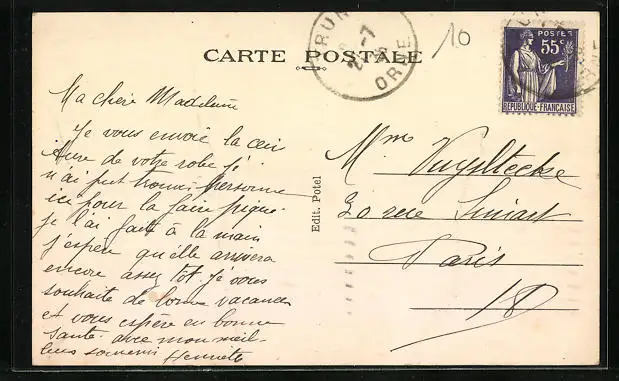 10
CARTE POSTALE
ORNE
POSTES
55c
REPUBLIQUE-FRANÇAISE
Ma chère Madeleine
Je vous envoie la cein
ture de votre robe je
n'ai put trouver personne
ici pour la faire piquer
je l'ai fait à la main
j'espère qu'elle arrivera
encore assez tôt je vous
souhaite de bonne vacances
et vous espère en bonne
santé. avec mon meil-
leurs souvenir Henriette
Edit. Potel
Mme Vuylsteke
20 rue Simart
Paris
18